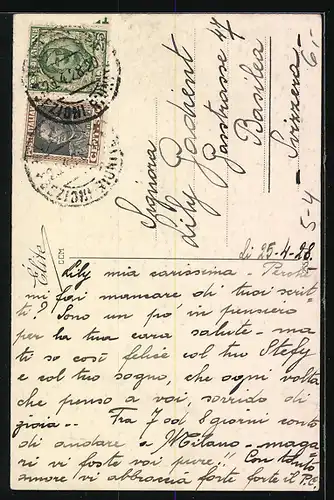 Signora
Lily Gadient
47
Basilea
Svizzera
6,-
5-4
Elvio
CCM
Li 25-4-28.
Lily mia carissima - Perchè
mi fai mancare di tuoi scrit-
ti? Sono un po' in pensiero
per la tua cara salute - ma
ti so così felice col tuo Stefy
e col tuo sogno, che ogni volta
che penso a voi, sorrido di
gioia.. - Fra 7 od 8 giorni conto
di andare a Milano - maga-
ri vi foste voi pure!! Con tanto
amore vi abbraccia forte forte il